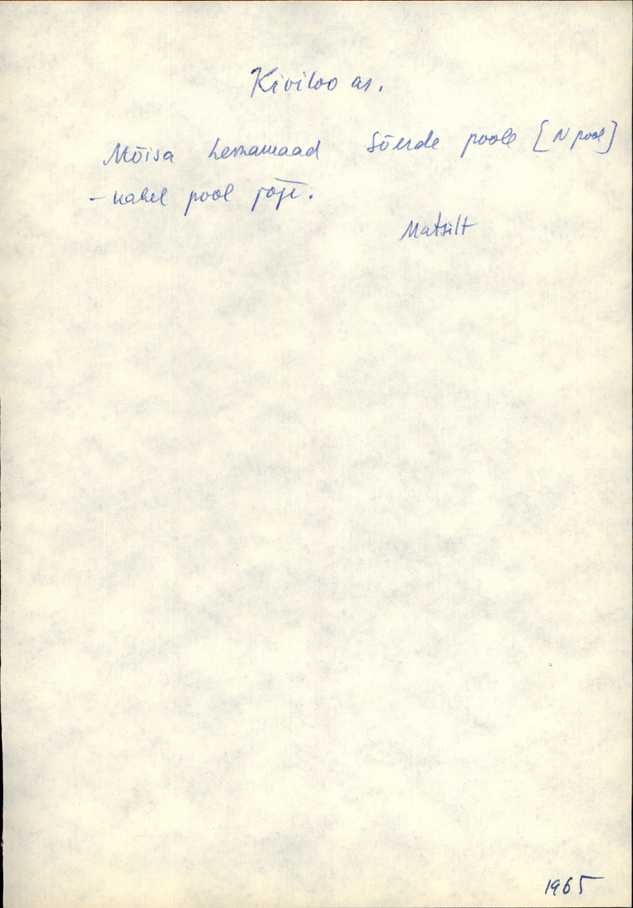 Kiviloo as.
Mõisa heinamaad Sõerde poole [N pool]
- kahel pool jõge.
Matsilt
1965